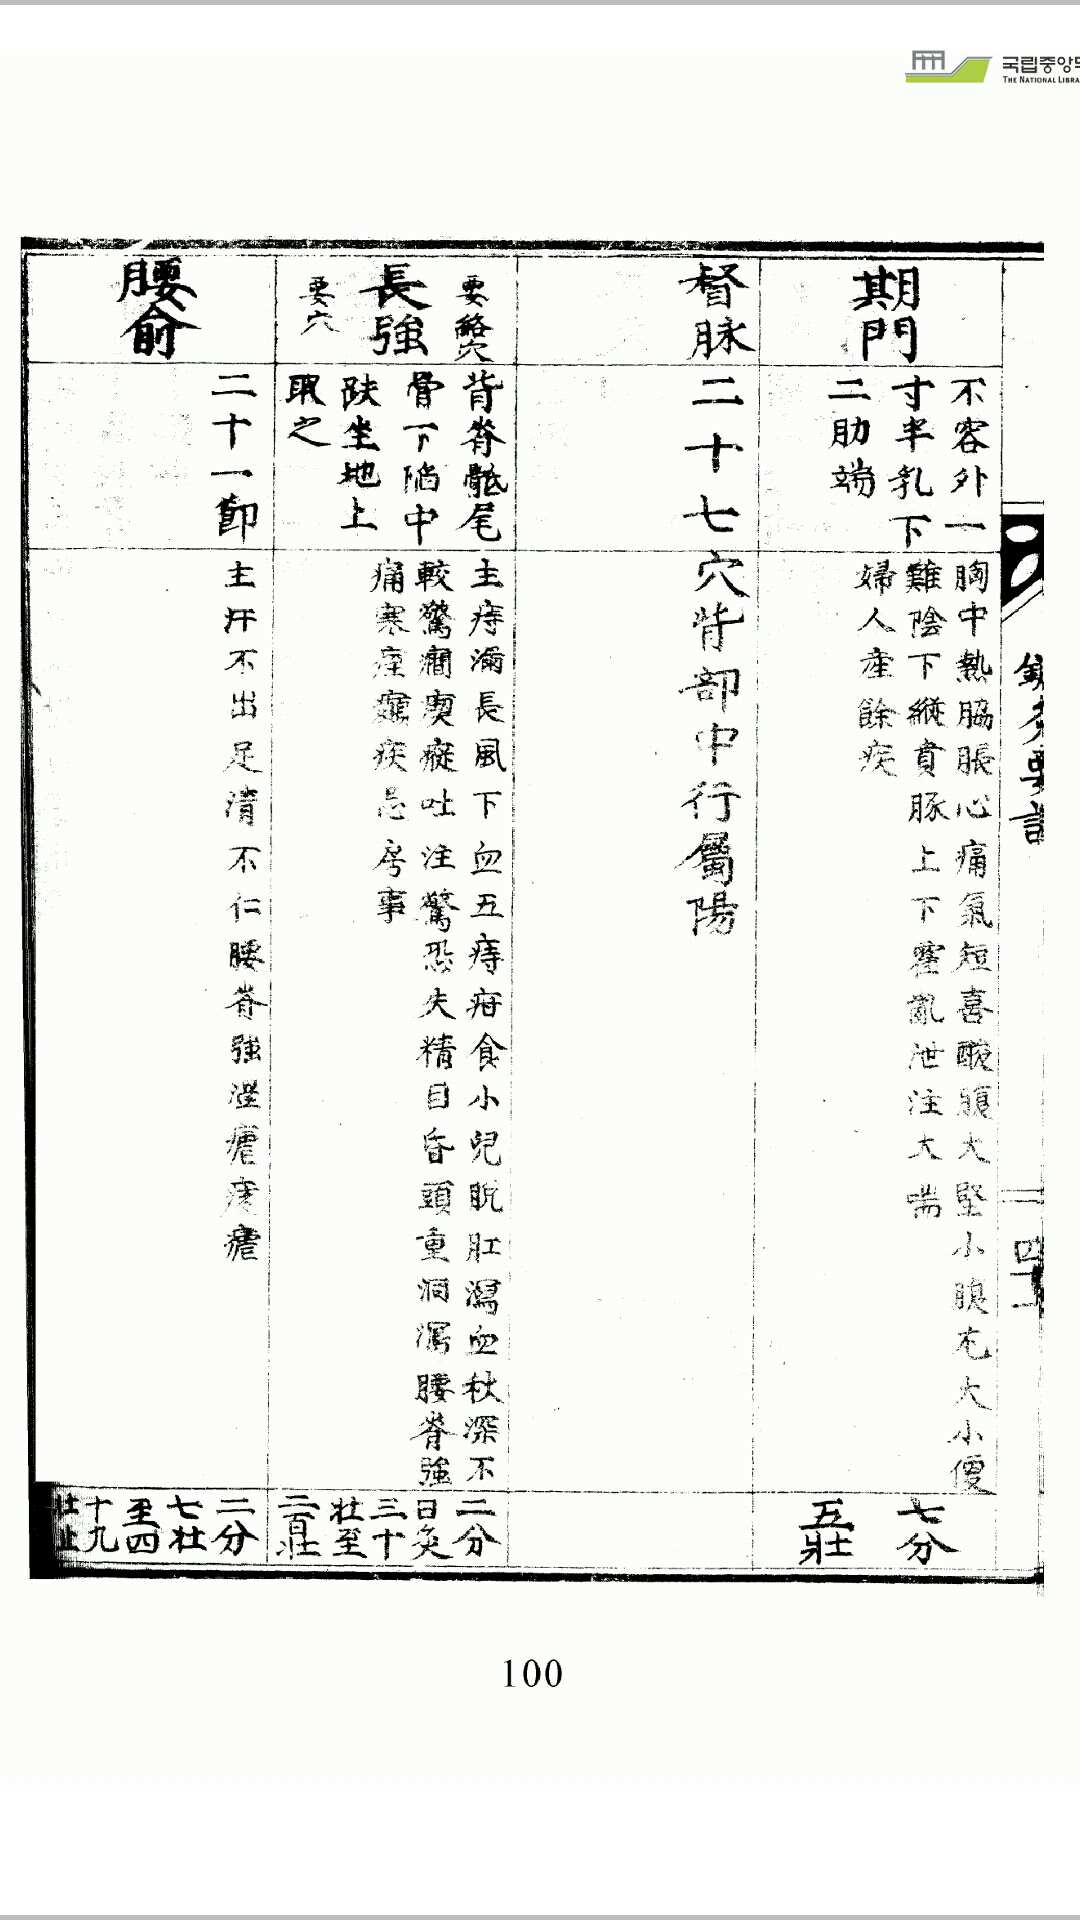 국립중앙도
THE NATIONAL LIBRA
期門
不容外一
寸半乳下
二肋端
胸中熱脇脹心痛氣短喜酸腹大堅小腹尤大小便
難陰下縱賁豚上下霍亂泄注大喘
婦人產餘疾
七分
五壯
督脉
二十七穴背部中行屬陽
要絡穴
長強
要穴
背脊骶尾
骨下陷中
趺坐地上
取之
主痔漏長風下血五痔疳食小兒脫肛瀉血秋深不
較驚癎瘈瘲吐注驚恐失精目昏頭重洞瀉腰脊強
痛寒痙癲疾忌房事
二分
日灸
三十
壯至
二百壯
腰俞
二十一節
主汗不出足清不仁腰脊強溫瘧痎瘧
二分
七壯
至四
十九
壯止
四十一
100